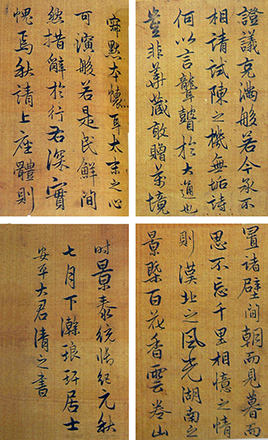 證議充滿般若今承不
相請試陳之機無垢詩
何以言聾瞽於大通也
豈非華藏敢贈境
寂默本懷耳太宗之心
可演般若是民鮮間
然措辭於行君深實
愧焉秋請上座體則
置諸壁間朝而見暮而
思不忘千里相憶之情
則漠北之風光湖南之
景槩百花香雲卷山
時景泰紀元秋
七月下澣琅玕居士
安平大君清之書